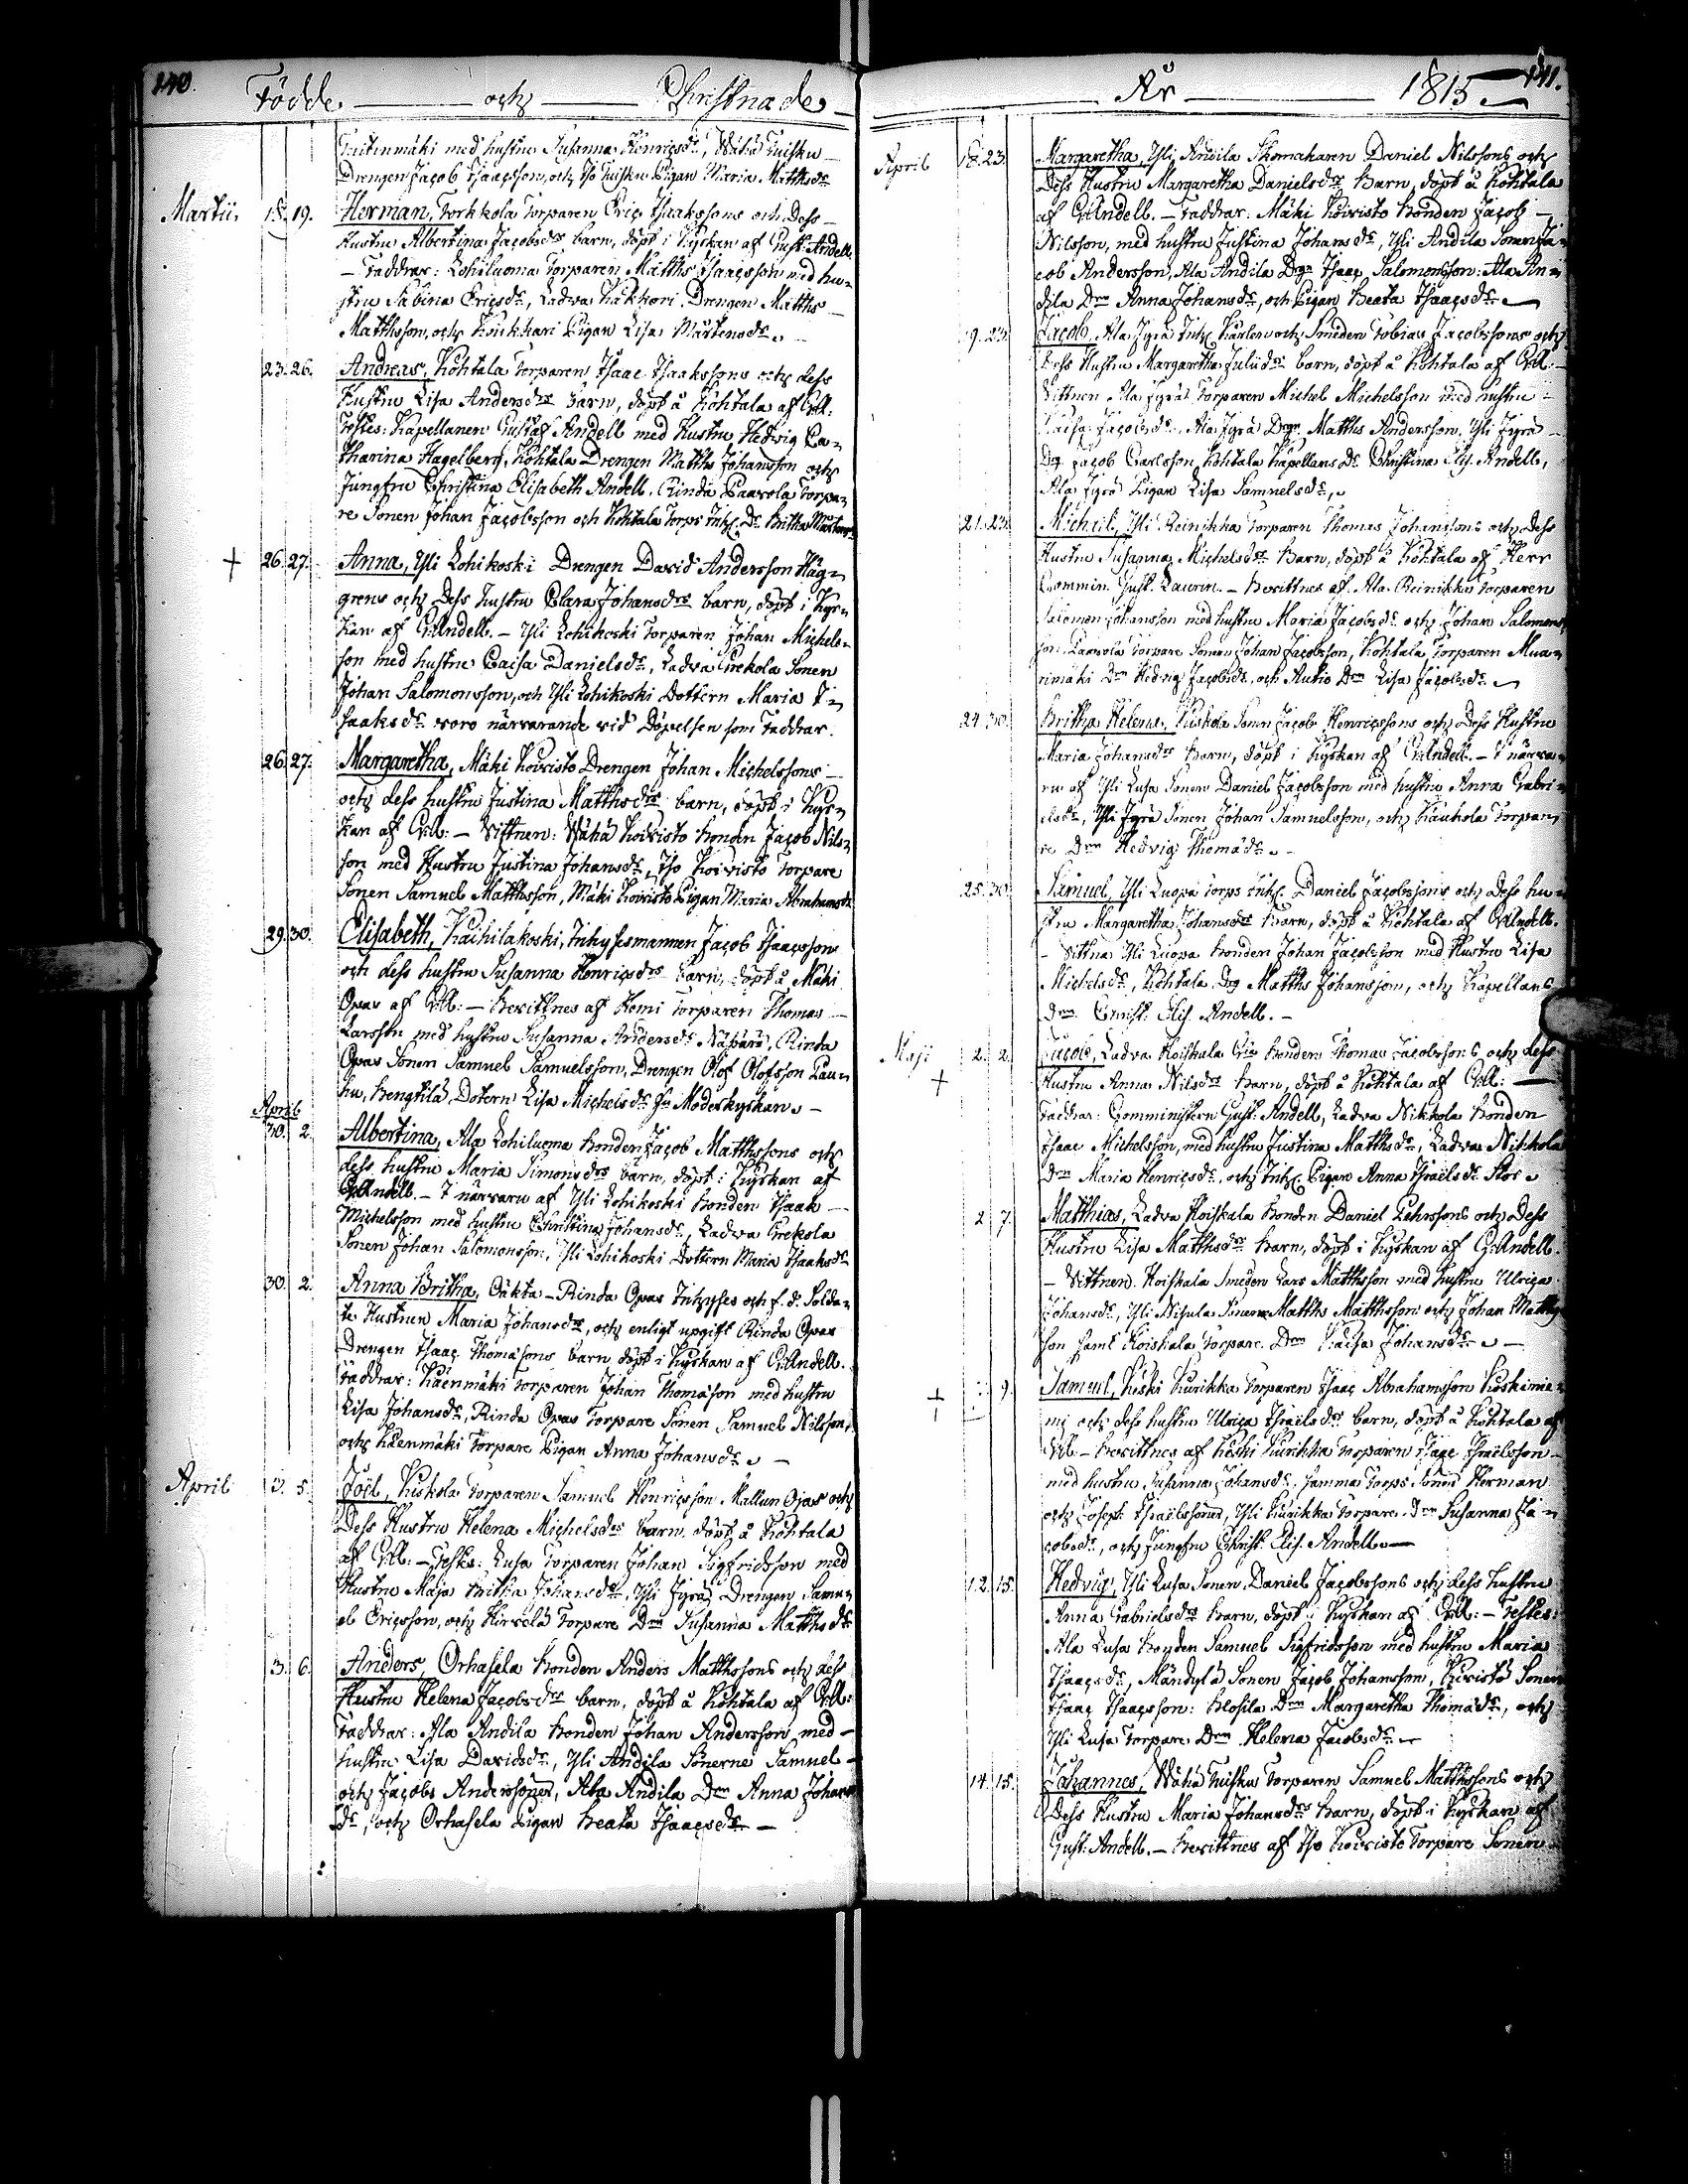 140.
Födde och Christnade
med hustru Susanna Henricsdr, Wähä Tuisku
Drengen Jacob Isaacsson, och Iso Tuisku Pigan Maria Matthsdr
Martii. 18. 19. Herman, Torkkola Torparen Eric Isaakssons och Dess
Hustru Albertina Jacobsdrs barn, döpt i Kyrkan af Gust: Andell.
– Faddrar: Lohiluoma Torparen Matths Isaacsson med hu-
stru Sabina Ericsdr, Ladva Drengen Matths
Matthsson, och Pigan Lisa Mårtensdr.
23. 26. Andreas, Kohtala Torparen Isaac Isaakssons och dess
Hustru Lisa Andersdrs barn, döpt å Kohtala af GAll:
Testes: Kapellanen Gustaf Andell med Hustru Hedvig Ca-
tharina Hagelberg, Kohtala Drengen Matths Johansson och
Jungfru Christina Elisabeth Andell. Rinda Paavola Torpa-
re Sonen Johan Jacobsson och Kohtala Torps Inh: Dr Britha Mårtensdr
+ 26. 27. Anna, Yli Lohikoski Drengen David Andersson Häg-
grens och Dess hustru Clara Johansdrs barn, döpt i Kyr-
kan af GAndell. – Yli Lohikoski Torparen Johan Michels-
son med hustru Caisa Danielsdr, Ladva Grekola Sonen
Johan Salomonsson, och Yli Lohikoski Dottern Maria I-
saaksdr voro närvarande vid Döpelsen som Faddrar.
26. 27. Margaretha, Mäki Koivisto Drengen Johan Michelssons
och dess hustru Justina Matthsdrs barn, döpt i Kyr-
kan af GAll: – Vittnen: Wähä Koivisto Bonden Jacob Nils-
son med Hustru Justina Johansdr, Iso Koivisto Torpare
Sonen Samuel Matthsson, Mäki Koivisto Pigan Maria Abrahamsdr
29. 30. Elisabeth, Kaihilakoski, Inhysesmannen Jacob Isaacssons
och dess hustru Susanna Henricsdrs barn, döpt å Mäki
Opas af GAll: – Bevittnes af Torparen Thomas
Larsson med hustru Susanna Andersdr Näpärä, Rinda
Opas Sonen Samuel Samuelsson, Drengen Olof Olofsson
Bengtilä Dotern Lisa Michelsdr fr Moderkyrkan. –
April
30. 2. Albertina, Ala Lohiluoma Bonden Jacob Matthssons och
dess hustru Maria Simonsdrs barn, döpt i Kyrkan af
GAndell. – I närvaru af Yli Lohikoski Bonden Isaak
Michelsson med hustru Christina Johansdr, Ladva Grekola
Sonen Johan Salomonsson, Yli Lohikoski Dottern Maria Isaaksdr
30. 2. Anna Britha, Oäkta – Rinda Opas Inhyses och f. d. Solda-
te Hustrun Maria Johansdrs, och enligt upgift Rinda Opas
Drengen Isaac Thomasons barn döpt i Kyrkan af GAndell.
Faddrar: Käenmäki Torparen Johan Thomason med hustru
Lisa Johansdr, Rinda Opas Torpare Sonen Samuel Nilsson,
och Käenmäki Torpare Pigan Anna Johansdr. –
April 3. 5. Joel, Kuskola Torparen Samuel Henricsson Mallun Ojas och
Dess Hustru Helena Michelsdrs barn, döpt å Kohtala
af GAll: – Testes: Lusa Torparen Johan Sigfridsson med
Hustru Maja Britha Johansdr, Yli Jyrä Drengen Samu-
el Ericsson, och Hirvelä Torpare Drn Susanna Matthsdr
3. 6. Anders, Orhasela Bonden Anders Matthssons och dess
Hustru Helena Jacobsdrs barn, döpt å Kohtala af GAll:
Faddrar: Ala Andila Bonden Johan Andersson med
hustru Lisa Davidsdr, Yli Andila Sönerne Samuel
och Jacobs Anderssöner, Ala Andila Drn Anna Johans-
dr, och Orhasela Pigan Beata Isaacsdr –
141.
År 1815
April 18. 23. Margaretha, Yli Andila Skomakaren Daniel Nilssons och
Dess Hustru Margaretha Danielsdrs barn, döpt å Kohtala
af GAndell. – Faddrar: Mäki Koivisto Bonden Jacob
Nilsson, med hustru Justina Johansdr, Yli Andila Sonen Ja-
cob Andersson, Ala Andila Drgn Isaac Salomonsson: Ala An-
dila Drn Anna Johansdr, och Pigan Beata Isaacsdr
19. 23. Jacob, Ala Jyrä Inh: Karlen och Smeden Tobias Jacobssons och
Dess Hustru Margaretha barn, döpt å Kohtala af GAll: –
Vittnen Ala Jyrä Torparen Michel Michelsson med hustru
Caisa Jacobsdr, Ala Jyrä Drgn Matths Andersson, Yli Jyrä
Dg Jacob Carlsson, Kohtala Kapellans Dr Christina Elis. Andell,
Ala Jyrä Pigan Lisa Samuelsdr.
21. 23. Michel, Yli Reinikka Torparen Thomas Johanssons och Dess
Hustru Susanna Michelsdrs barn, döpt å Kohtala af Herr
Commin. Gust. Laurin. – Bevittnes af Ala Reinikka Torparen
Salomon Johansson med hustru Maria Jacobsdr och Johan Salomons-
son, Paavola Torpare Sonen Johan Jacobsson, Kohtala Torparen Mua-
rimäki Drn Hedvig Jacobsdr, och Autio Drn Lisa Jacobsdr
24. 30. Britha Helena, Kuskola Sonen Jacob Henricssons och Dess Hustru
Maria Johansdrs barn, döpt i Kyrkan af GAndell. – I närva-
ru af Yli Lusa Sonen Daniel Jacobsson med hustru Anna Gabri-
elsdr, Yli Jyrä Sonen Johan Samuelsson, och Kauhola Torpa-
re Drn Hedvig Thomädr. –
25. 30. Samuel, Yli Luopa Torps Inh: Daniel Jacobssons och dess hu-
stru Margaretha Johansdrs barn, döpt å Kohtala af GAndell.
– Vittna Yli Luopa Bonden Johan Jacobsson med Hustru Lisa
Michelsdr, Kohtala Drg Matths Johansson, och Kapellans
Drn Christ: Elis. Andell. –
Maji 2. 2. Jacob, Ladva Koiskala Bonden Thomas Jacobssons och dess
+ Hustru Anna Nilsdrs barn, döpt å Kohtala af GAll: –
Faddrar: Comministern Gust. Andell, Ladva Nikkola Bonden
Isaac Michelsson, med hustru Justina Matthsdr, Ladva Nikkola
Drn Maria Henricsdr, och Inh: Pigan Anna Israelsdr
2. 7. Matthias, Ladva Koiskala Bonden Daniel och Dess
Hustru Lisa Matthsdrs barn, döpt i Kyrkan af G:Andell.
– Vittnen Koiskala Smeden Lars Matthsson med hustru Ulrica
Johansdr, Yli Nisula Sönerne Matths Matthsson och Johan Matths-
son samt Koiskala Torpare Drn Caisa Johansdr. –
+ 9. Samuel, Koski Kurikka Torparen Isaac Abrahamsson Koskinie-
mi och dess hustru Ulrica Israelsdrs barn, döpt å Kohtala af
GAll – Bevittnes af Koski Kurikka Torparen Isaac Israelsson
med hustru Susanna Johansdr, Samma Torps Söner Herman
och Joseph Israelssöner, Yli Kurikka Torpare Drn Susanna Ja-
cobsdr, och Jungfru Christ. Elis. Andell. –
12. 15. Hedvig, Yli Lusa Sonen, Daniel Jacobssons och dess hustru
Anna Gabrielsdrs barn, döpt i Kyrkan af GAll: – Testes:
Ala Lusa Bonden Samuel Sigfridsson med hustru Maria
Isaacsdr, Mändylä Sonen Jacob Johansson, Koivisto Sonen
Isaac Isaacsson: Drn Margaretha Thomädr, och
Yli Lusa Torpare Drn Helena Jacobsdr
14. 15. Johannes, Wähä Tuisku Torparen Samuel Matthssons och
Dess Hustru Maria Johansdrs barn, döpt i Kyrkan af
Gust: Andell. – Bevittnes af Iso Koivisto Torpare Sonen